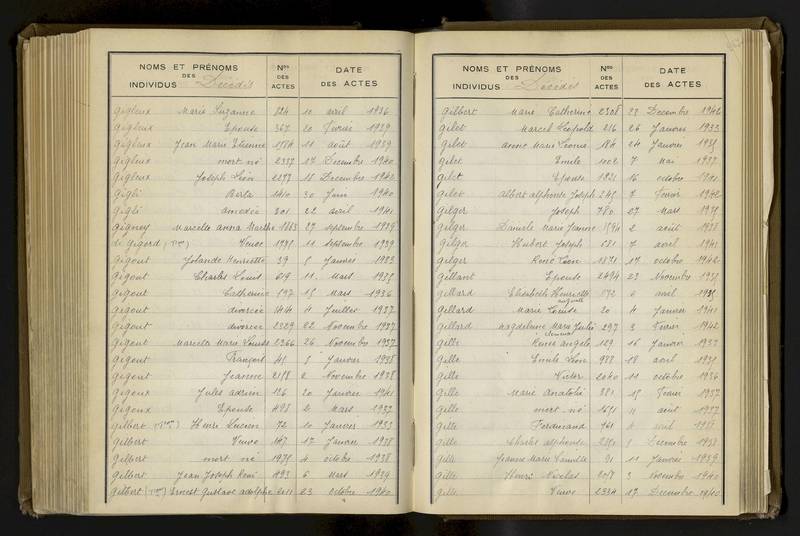 NOMS ET PRÉNOMS
DES
INDIVIDUS Décédés
Nos
DES
ACTES
DATE
DES ACTES
Gigleux Marie Suzanne 224 10 avril 1936
Gigleux Epouse 367 20 Février 1939
Gigleux Jean Marie Etienne 11 août 1939
Gigleux mort né 2337 17 Decembre 1940
Gigleux Joseph Léon 18 Decembre 1942
Gigli Berta 1410 30 Juin 1940
Gigli amedeo 301 22 avril 1941
Gigney Marcelle anna Marthe 1863 27 septembre 1939
de Gigord Veuve 11 septembre 1939
Gigout Yolande Henriette 39 5 Janvier 1933
Gigout Charles Louis 619 11 Mars 1935
Gigout Catherine 197 15 Mars 1936
Gigout divorcée 1414 4 Juillet 1937
Gigout divorcee 2329 22 Novembre 1937
Gigout Marcelle Marie Louise 2366 26 Novembre 1937
Gigout François 41 5 Janvier 1938
Gigout Jeanne 2158 2 Novembre 1938
Gigoux Jules adrien 126 20 Janvier 1941
Gigoux Epouse 498 2 Mars 1937
Gilbert Henri Lucien 72 10 Janvier 1933
Gilbert Veuve 147 17 Janvier 1938
Gilbert mort né 1975 4 octobre 1938
Gilbert Jean Joseph René 493 6 Mars 1939
Gilbert Ernest Gustave adolphe 2011 23 octobre 1940
NOMS ET PRÉNOMS
DES
INDIVIDUS Décédés
Nos
DES
ACTES
DATE
DES ACTES
Gilbert Marie Catherine 2308 22 Decembre 1942
Gilet Marcel Léopold 216 26 Janvier 1933
Gilet Marie Léonie 184 24 Janvier 1935
Gilet Emile 1002 7 Mai 1937
Gilet Epouse 1821 16 octobre 1941
Gilet albert alphonse Joseph 245 7 Fevrier 1942
Gilger Joseph 780 27 Mars 1935
Gilger Daniele Marie Jeanne 1594 2 août 1938
Gilger Hubert Joseph 681 7 avril 1941
Gilger René Léon 1871 17 octobre 1942
Gillant Epouse 2494 23 Novembre 1935
Gillard Elisabeth Henriette 872 6 avril 1935
Gillard Marie Louise 20 4 Janvier 1941
Gillard Magdeleine Marie Julie 297 3 Fevrier 1942
Gille Renée angele 129 16 Janvier 1933
Gille Emile Léon 988 18 avril 1935
Gille Victor 2040 11 octobre 1936
Gille Marie anatolie 381 15 Fevrier 1937
Gille mort né 1651 11 août 1937
Gille Ferdinand 761 4 avril 1938
Gille Charles alphonse 5 Decembre 1938
Gille Jeanne Marie Camille 91 11 Janvier 1939
Gille Henri Nicolas 2057 3 Novembre 1940
Gille Veuve 2334 17 Decembre 1940